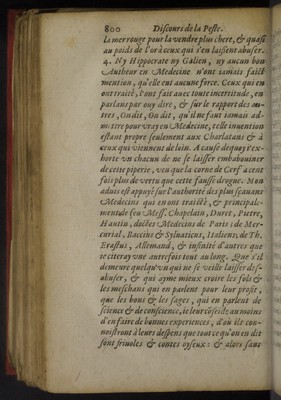 800 Discours de la Peste.
la mer rouge pour la vendre plus chere, & quasi
au poids de l'or à ceux qui s'en laissent abuser.
4. Ny Hippocrate ny Galien, ny aucun bon
Autheur en Medecine n'ont iamais faict
mention, qu'elle eut aucune force. Ceux qui en
ont traité, l'ont fait auec toute incertitude, en
parlans par ouy dire, & sur le rapport des au-
tres, On dit, On dit, qu'il ne faut iamais ad-
mettre pour vray en Medecine, telle inuention
estant propre seulement aux Charlatans & à
ceux qui viennent de loin. A cause dequoy i'ex-
horte vn chacun de ne se laisser embabouiner
de cette piperie, veu que la corne de Cerf a cent
fois plus de vertu que cette fausse drogue. Mon
aduis est appuyé sur l'authorité des plus sçauans
Medecins qui en ont traitté, & principale-
ment de feu Mess. Chapelain, Duret, Pietre,
Hautin, doctes Medecins de Paris: de Mer-
curial, Baccius & Sylnaticus, Italiens; de Th.
Erastus, Allemand, & infinité d'autres que
ie citeray vne autrefois tout au long. Que s'il
demeure quelqu'vn qui ne se veille laisser des-
abuser, & qui ayme mieux croire les fols &
les meschans qui en parlent pour leur profit,
que les bons & les sages, qui en parlent de
science & de conscience, ie leur conseille au moins
d'en faire de bonnes experiences, d'où ils con-
noistront à leurs despens que tout ce qu'on en dit
sont friuoles & contes oyseux: & alors sans